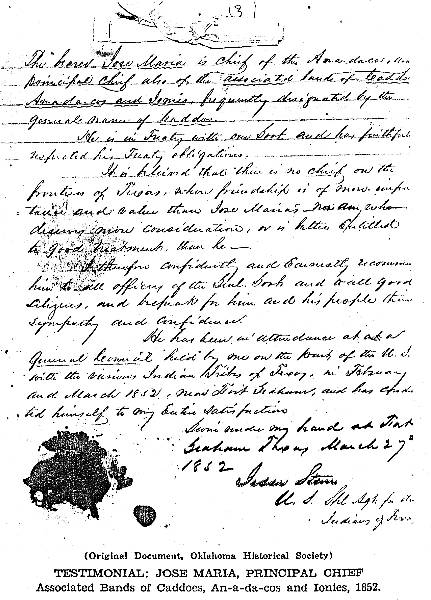 13
The bearer Jose Maria is chief of the Anadacos, the
principal chief also of the associated bands of Caddo
Anadacos and Ionies, frequently designated by the
general name of Caddoes.
He is in Treaty with our Govt and has faithfully
respected his Treaty obligations.
It is believed that there is no chief on the
frontiers of Texas, whose friendship is of more impor
tance and value than Jose Maria's - nor any who
deserves more consideration, or is better Entitled
to good treatment, than he —
I therefore confidently and Earnestly recommend
him to all officers of the and to all good
Citizens, and bespeak for him and his people their
Sympathy and Confidence.
He has been in attendance at a
General Council held by me on the part of the U. S.
with the various Indian Tribes of Texas, in February
and March 1852, near Fort Graham, and has condu
ted himself to my Entire Satisfaction
Given under my hand at Fort
Graham Texas March 27th
1852
Jesse Stem
U. S. Spl Agt for the
Indians of Texas
(Original Document, Oklahoma Historical Society)
TESTIMONIAL: JOSE MARIA, PRINCIPAL CHIEF
Associated Bands of Caddoes, An-a-da-cos and Ionies, 1852.